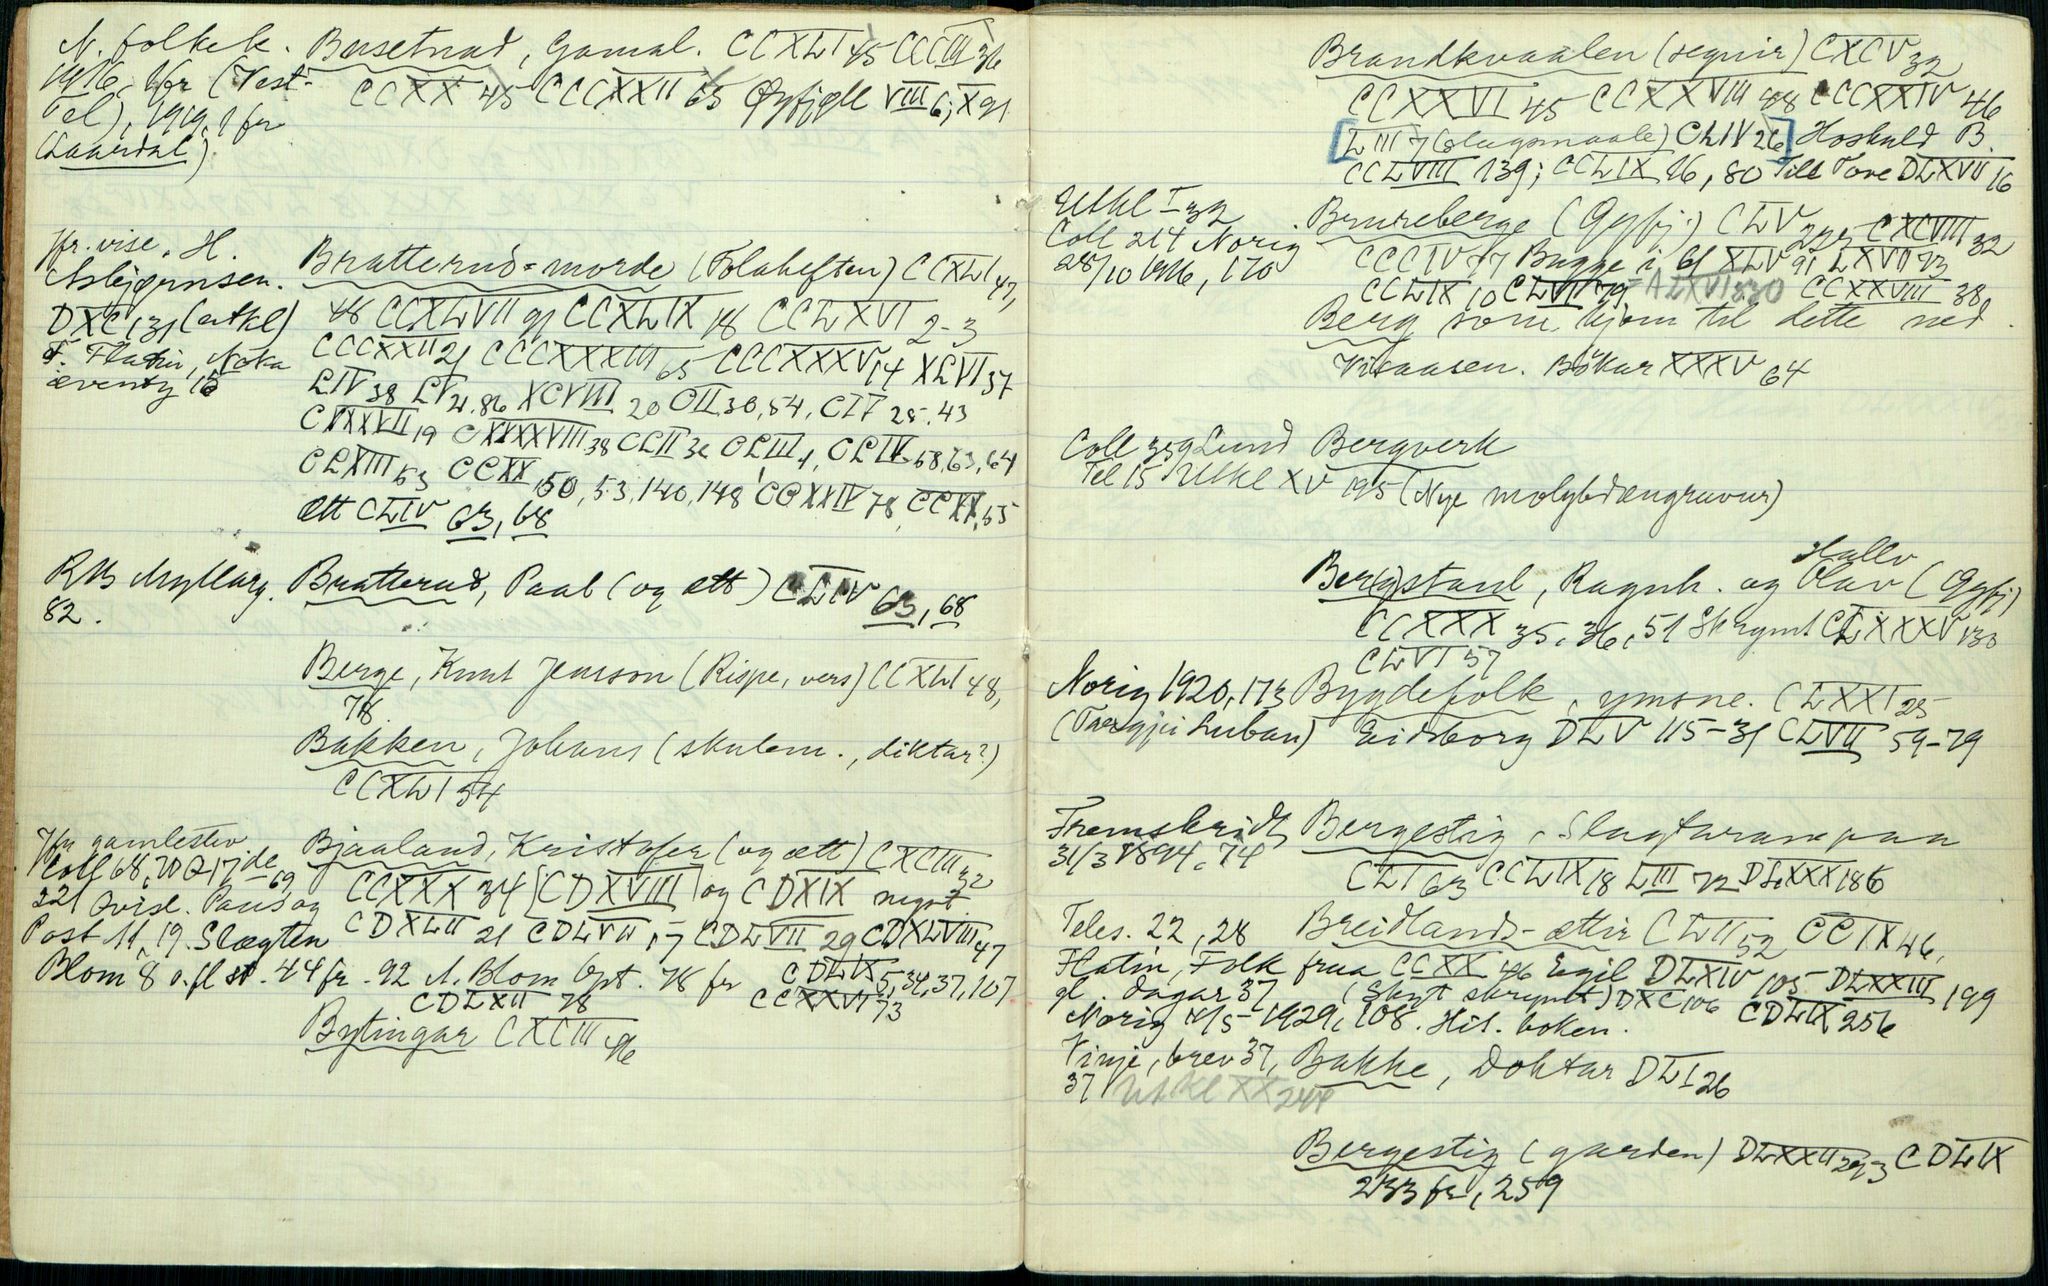 N. folkek. Busetnad, Gamal. CCXLI 45 CCCIII 36
1916, 1 fr (Vest- CCXX 45 CCCXXII 65 Øyfjell VIII 6; X 91
Tel), 1919, 1 fr
(Laardal)
Jfr. vise. H. Bratterud-morde (Folaheften) CCXLI 47,
Asbjørnsen. 48 CCXLVII 91 CCXLIX 18 CCLXVI 2-3
DXC 131 (utkl) CCCXXII 21 CCCXXXIII 65 CCCXXXV 14 XLVI 37
T. Flatin, Noka LIV 38 LV 21.86 XCVIII 20 CII 30,54, CIV 25.43
eventy 15
19 38 CLII 32 CLIII 1, CLIV 58,63,64
CLXIII 53 CCXX 50, 53, 140, 148 CCXXIV 78, CCXX, 55
ætt CLIV 63, 68
RB Myllarg. Bratterud, Paal (og ætt) CLIV 63, 68
82.
Berge, Knut Jensson (Rispe, vers) CCXLI 48,
78
Bakken, Johans (skulem., diktar?)
CCXLI 54
Jfr gamlestev Bjaaland, Kristofer (og ætt) CXCIII 32
Coll 68, 20 CCXXX 34 [CDXVIII] og CDXIX mykt
221 Avisl. Paus og CDXLII 21 CDLVII, 7 CDLVII 29 CDXLVIII 47
Post 11, 19. Slægten
Blom 8 o. fl st. 44 fr. 92 A. Blom Opt. 78 fr CDLIX 5, 34, 37, 107
CDLXII 78 CCXXVI 73
Bytingar CXCIII 46
Brandkvaalen (segnir) CXCV 32
CCXXVI 45 CCXXVIII 48 CCCXXIV 46
[LIII 7 (slagsmaale) CLIV 26] Hoskuld B.
CCLVIII 139; CCLIX 16, 80 Till Tove DLXVII 16
Utkl I 32 Brureberge (Øyfj.) CLV CXCVIII 32
Coll 214 Norig CCCIV 77 Bugge i bl XLV 91 LXVII 73
28/10 1916, 170 CCLIX 10 CLVII 79 ALXVI 530 CCXXVIII 38
Berg som kjem til dette ned.
Kivaasen. Bökar XXXV 64
Coll 359 Lund Bergverk
Tel 15 Utkl XV 195 (Nye molybdængruvur)
Hallv
Bergstaul, Ragnh. og Olav (Øyfj)
CCXXX 35, 36, 51 Skrymt CLXXXV 130
CLVI 57
Norig 1920, 173 Bygdefolk, ymsne. CLXXI 25
(Targjei Luban) Eidsborg DLV 115-31 CLVII 59-79
Fremskridt Bergestig, Slagtaran paa
31/3 1894, 74 CLI 63 CCLIX 18 LIII 72 DLXXX 186
Teles. 22, 28 Breidlands-ættir CLII 52 CCIX 46,
Flatin, Folk fraa CCXX 46 Egil DLXIV 105 DLXXIII 199
gl. dagar 37 (Skyt skrymt) DXC 106 CDLIX 256
Norig 4/5 1929, 108. Hit. boken.
Vinje, brev 37, Bakke, Doktar DLI 26
37 Utkl XX 244
Bergestig (garden) DLXXII 293 CDLIX
233 fr, 259